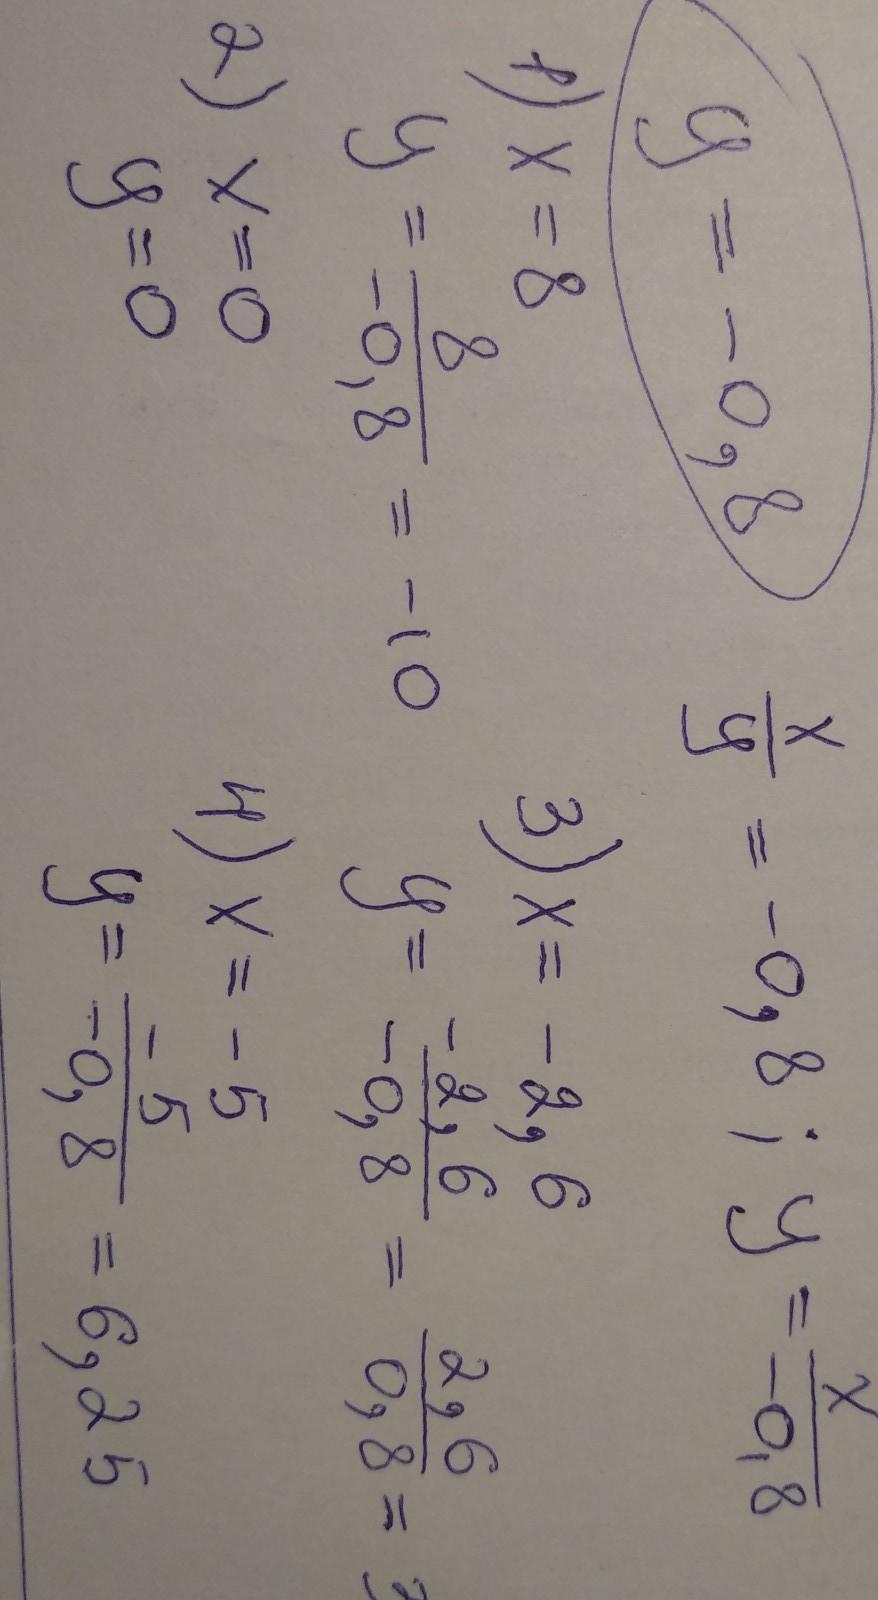 y = -0,8 x/y = -0,8; y = x/-0,8
1) x = 8
y = 8/-0,8 = -10
2) x = 0
y = 0
3) x = -2,6
y = -2,6/-0,8 = 2,6/0,8 =
4) x = -5
y = -5/-0,8 = 6,25